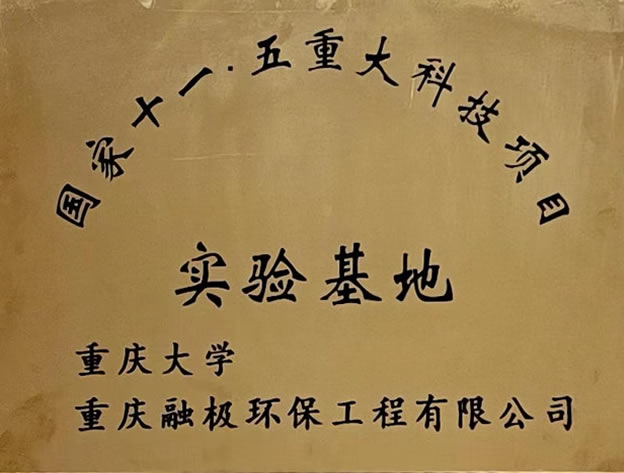 国家十一·五重大科技项目
实验基地
重庆大学
重庆融极环保工程有限公司